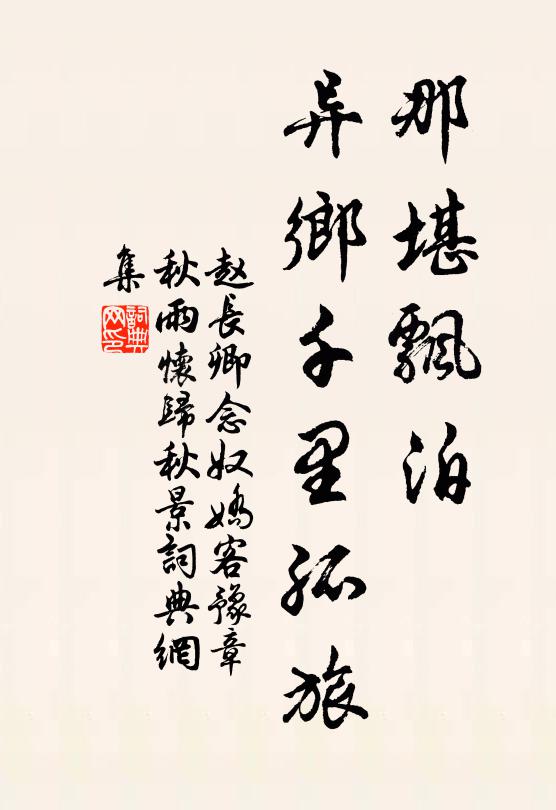 那堪飄泊
异鄉千里孤旅
赵長卿念奴嬌客豫章
秋雨懷歸秋景詞典網
集
詞典
网印